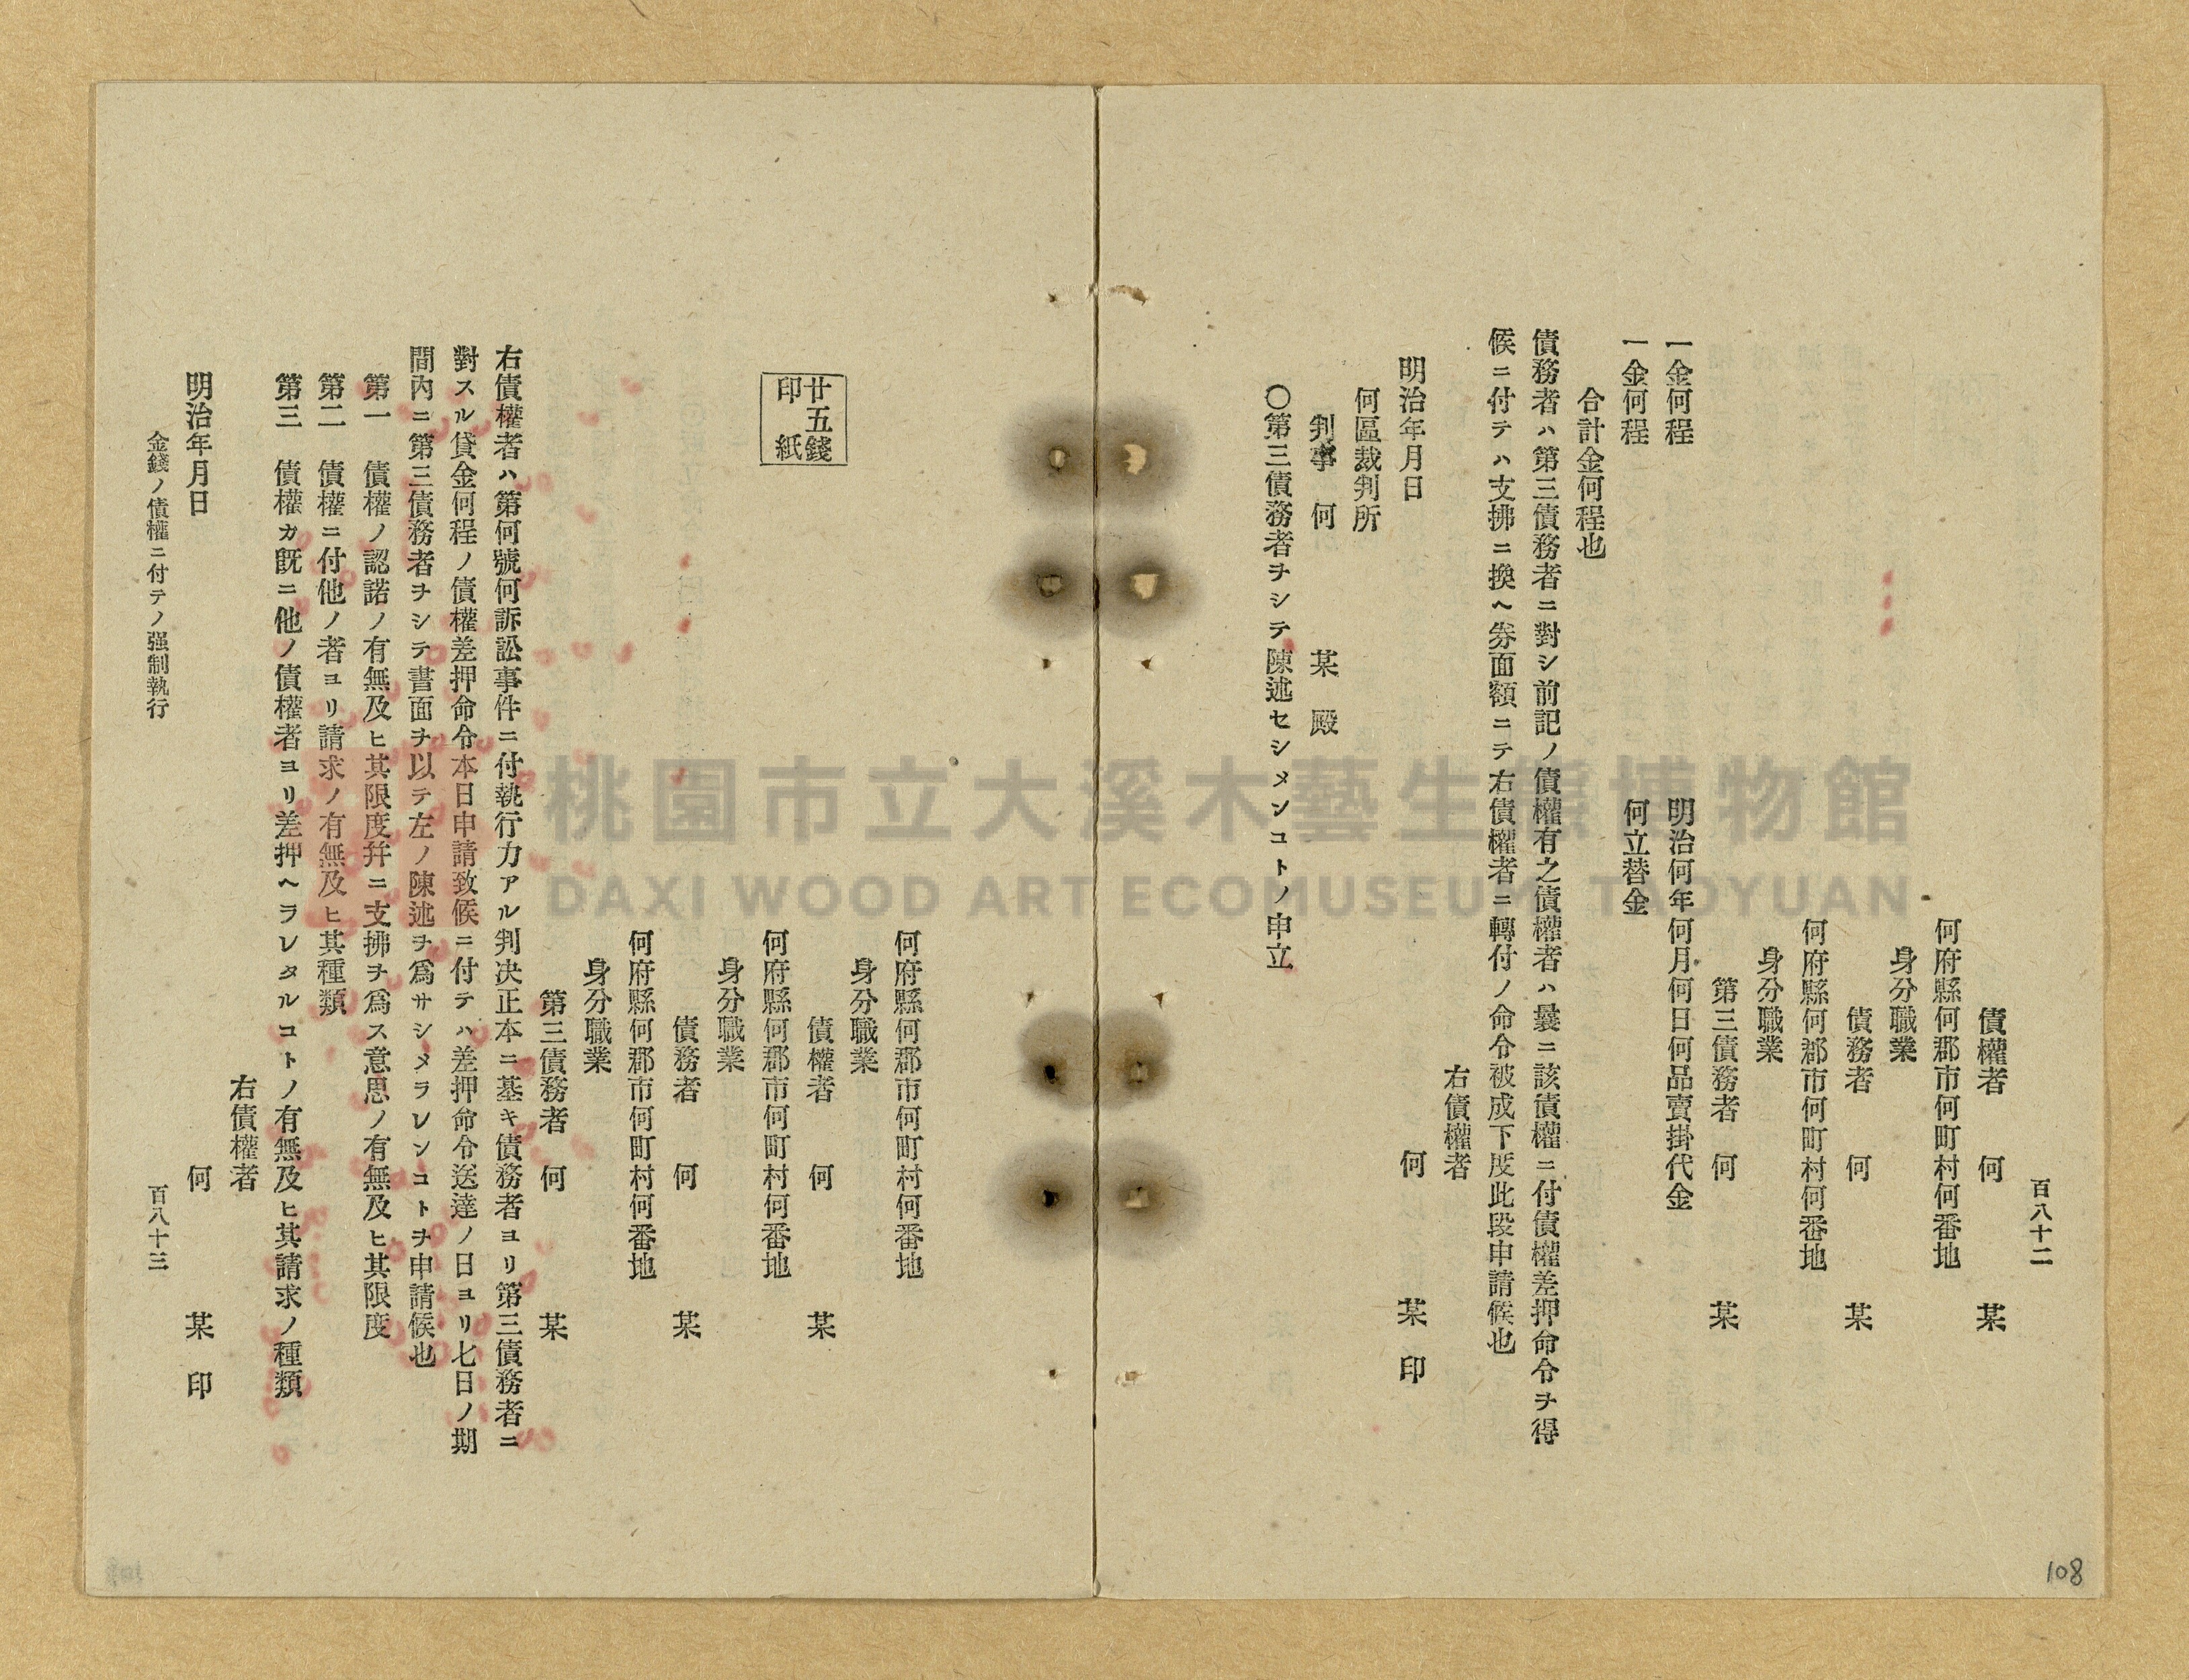 百八十二
債權者　何　　某
何府縣何郡市何町村何番地
身分職業
債務者　何　　某
何府縣何郡市何町村何番地
身分職業
第三債務者　何　　某
一金何程　　明治何年何月何日何品賣掛代金
一金何程　　何立替金
合計金何程也
債務者ハ第三債務者ニ對シ前記ノ債權有之債權者ハ曩ニ該債權ニ付債權差押命令ヲ得
候ニ付テハ支拂ニ換ヘ劵面額ニテ右債權者ニ轉付ノ命令被成下度此段申請候也
右債權者
明治年月日　　何　　某　印
何區裁判所
判事　何　　某　殿
〇第三債務者ヲシテ陳述セシメンコトノ申立
何府縣何郡市何町村何番地
身分職業
債權者　何　　某
廿五錢
印　紙
何府縣何郡市何町村何番地
身分職業
債務者　何　　某
何府縣何郡市何町村何番地
身分職業
第三債務者　何　　某
右債權者ハ第何號何訴訟事件ニ付執行力アル判决正本ニ基キ債務者ヨリ第三債務者ニ
對スル貸金何程ノ債權差押命令本日申請致候ニ付テハ差押命令送達ノ日ヨリ七日ノ期
間内ニ第三債務者ヲシテ書面ヲ以テ左ノ陳述ヲ爲サシメラレンコトヲ申請候也
第一　債權ノ認諾ノ有無及ヒ其限度幷ニ支拂ヲ爲ス意思ノ有無及ヒ其限度
第二　債權ニ付他ノ者ヨリ請求ノ有無及ヒ其種類
第三　債權カ既ニ他ノ債權者ヨリ差押ヘラレタルコトノ有無及ヒ其請求ノ種類
右債權者
明治年月日　　何　　某　印
金錢ノ債權ニ付テノ强制執行　　百八十三
108
桃園市立大溪木藝生態博物館
DAXI WOOD ART ECOMUSEUM, TAOYUAN